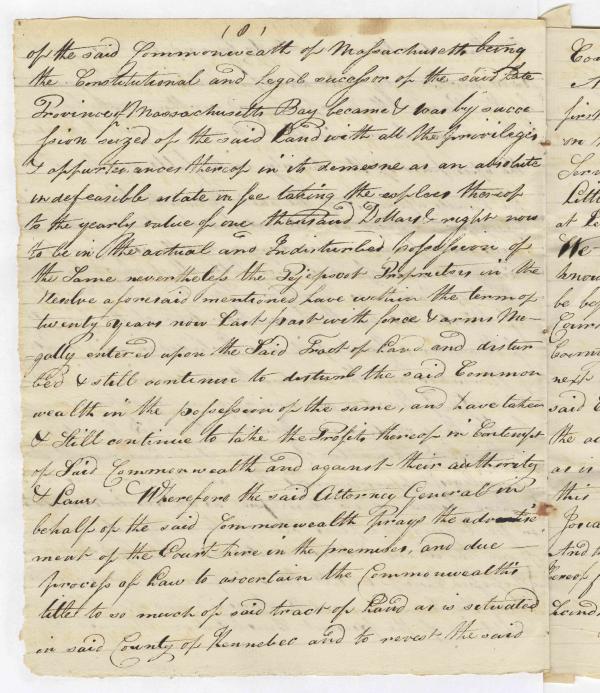 (8)
of the said Commonwealth of Massachusetts being
the Constitutional and Legal successor of the said Late
Province of Massachusetts Bay became & was by succe
ssion seized of the said Land with all the priviliges
& appurtenances thereof in its demesne as an absolute
indefeasible estate in fee taking the esplees thereof
to the yearly value of one thousand Dollars & right now
to be in the actual and Indisturbed possession of
the Same nevertheless the Pejepscot Proprietors in the
Resolve aforesaid mentioned have within the term of
twenty years now Last past with force & arms Ille
gally entered upon the Said Tract of Land and distur
bed & still continue to disturb the said Common
wealth in the possession of the same, and have taken
& Still continue to take the Profits thereof in Contempt
of Said Commonwealth and against their authority
& Laws Wherefore the said Attorney General in
behalf of the said Commonwealth Prays the advise
ment of the Court here in the premises, and due
process of Law to ascertain the Commonwealth's
title to so much of said tract of Land as is situated
in said County of Kennebec and to revest the said
first
on
at
We
know
next
said
the
as is
this
And